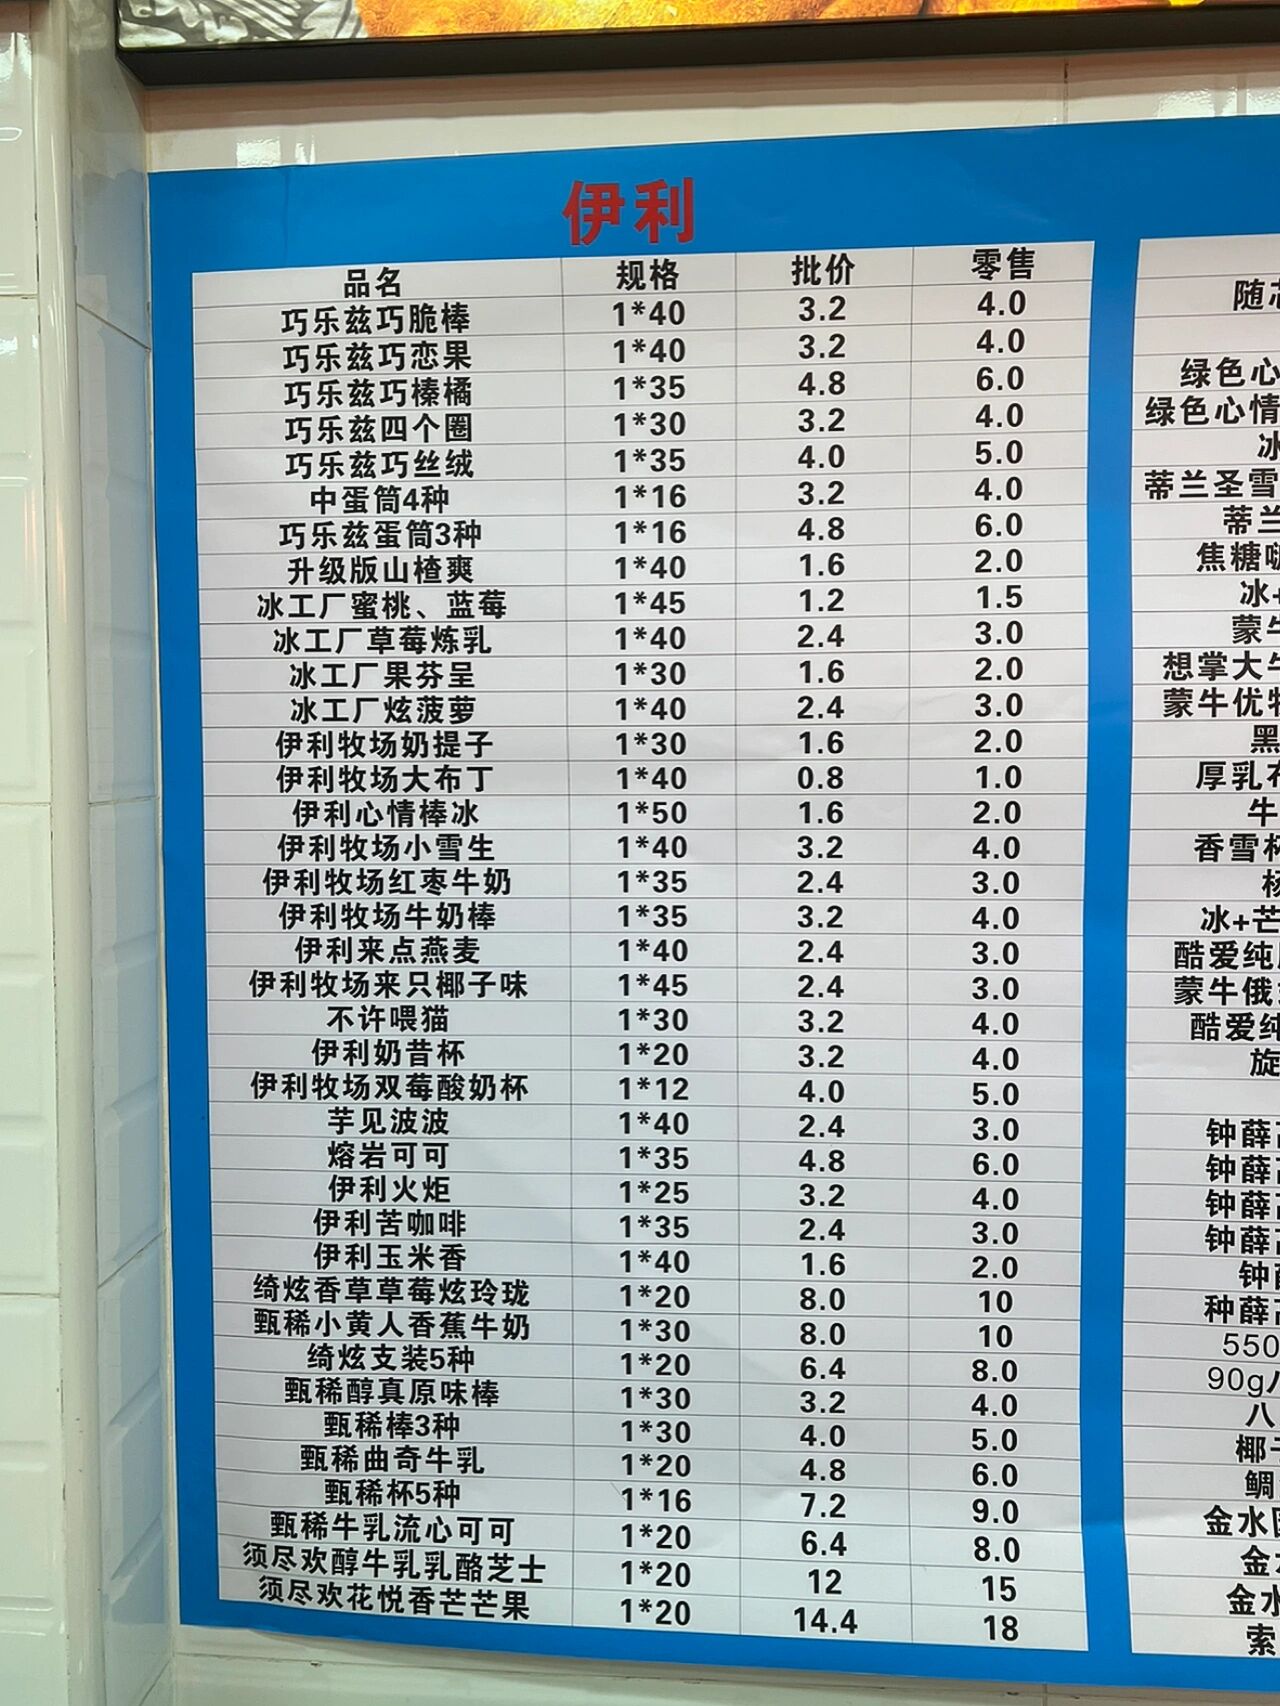 伊利
品名 规格 批价 零售
巧乐兹巧脆棒 1*40 3.2 4.0
巧乐兹巧恋果 1*40 3.2 4.0
巧乐兹巧榛橘 1*35 4.8 6.0
巧乐兹四个圈 1*30 3.2 4.0
巧乐兹巧丝绒 1*35 4.0 5.0
中蛋筒4种 1*16 3.2 4.0
巧乐兹蛋筒3种 1*16 4.8 6.0
升级版山楂爽 1*40 1.6 2.0
冰工厂蜜桃、蓝莓 1*45 1.2 1.5
冰工厂草莓炼乳 1*40 2.4 3.0
冰工厂果芬呈 1*30 1.6 2.0
冰工厂炫菠萝 1*40 2.4 3.0
伊利牧场奶提子 1*30 1.6 2.0
伊利牧场大布丁 1*40 0.8 1.0
伊利心情棒冰 1*50 1.6 2.0
伊利牧场小雪生 1*40 3.2 4.0
伊利牧场红枣牛奶 1*35 2.4 3.0
伊利牧场牛奶棒 1*35 3.2 4.0
伊利来点燕麦 1*40 2.4 3.0
伊利牧场来只椰子味 1*45 2.4 3.0
不许喂猫 1*30 3.2 4.0
伊利奶昔杯 1*20 3.2 4.0
伊利牧场双莓酸奶杯 1*12 4.0 5.0
芋见波波 1*40 2.4 3.0
熔岩可可 1*35 4.8 6.0
伊利火炬 1*25 3.2 4.0
伊利苦咖啡 1*35 2.4 3.0
伊利玉米香 1*40 1.6 2.0
绮炫香草草莓炫玲珑 1*20 8.0 10
甄稀小黄人香蕉牛奶 1*30 8.0 10
绮炫支装5种 1*20 6.4 8.0
甄稀醇真原味棒 1*30 3.2 4.0
甄稀棒3种 1*30 4.0 5.0
甄稀曲奇牛乳 1*20 4.8 6.0
甄稀杯5种 1*16 7.2 9.0
甄稀牛乳流心可可 1*20 6.4 8.0
须尽欢醇牛乳乳酪芝士 1*20 12 15
须尽欢花悦香芒芒果 1*20 14.4 18
随
绿色心
绿色心情
冰
蒂兰圣雪
蒂兰
焦糖
冰+
蒙牛
想掌大牛
蒙牛优牧
黑
厚乳
牛
香雪杯
杨
冰+芒
酷爱纯
蒙牛俄
酷爱纯
旋
钟薛
钟薛
钟薛
钟薛
钟
种薛
550
90g
八
椰
鲷
金水
金
金水
索